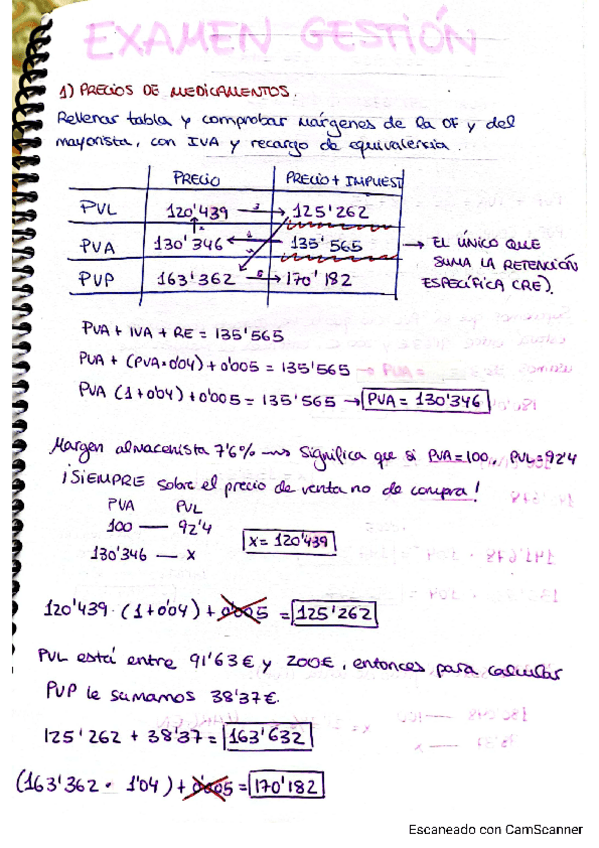 EXAMEN GESTIÓN
1) PRECIOS DE MEDICAMENTOS.
Rellenar tabla y comprobar márgenes de la OF y del
mayorista, con IVA y recargo de equivalencia.
PRECIO PRECIO + IMPUEST
PVL 120'439 125'262
PVA 130'346 135'565 → EL ÚNICO QUE
SUMA LA RETENCIÓN
ESPECÍFICA (RE).
PVP 163'362 170'182
PVA + IVA + RE = 135'565
PVA + (PVA·0'04) + 0'005 = 135'565
PVA (1+0'04) + 0'005 = 135'565 → PVA = 130'346
Margen almacenista 7'6% → Significa que si PVA=100 PVL=92'4
¡SIEMPRE sobre el precio de venta no de compra!
PVA PVL
100 — 92'4
130'346 — x
x = 120'439
120'439 · (1+0'04) + 0'005 = 125'262
PVL está entre 91'63€ y 200€, entonces para calcular
PVP le sumamos 38'37€.
125'262 + 38'37 = 163'632
(163'362 · 1'04) + 0'005 = 170'182
Escaneado con CamScanner